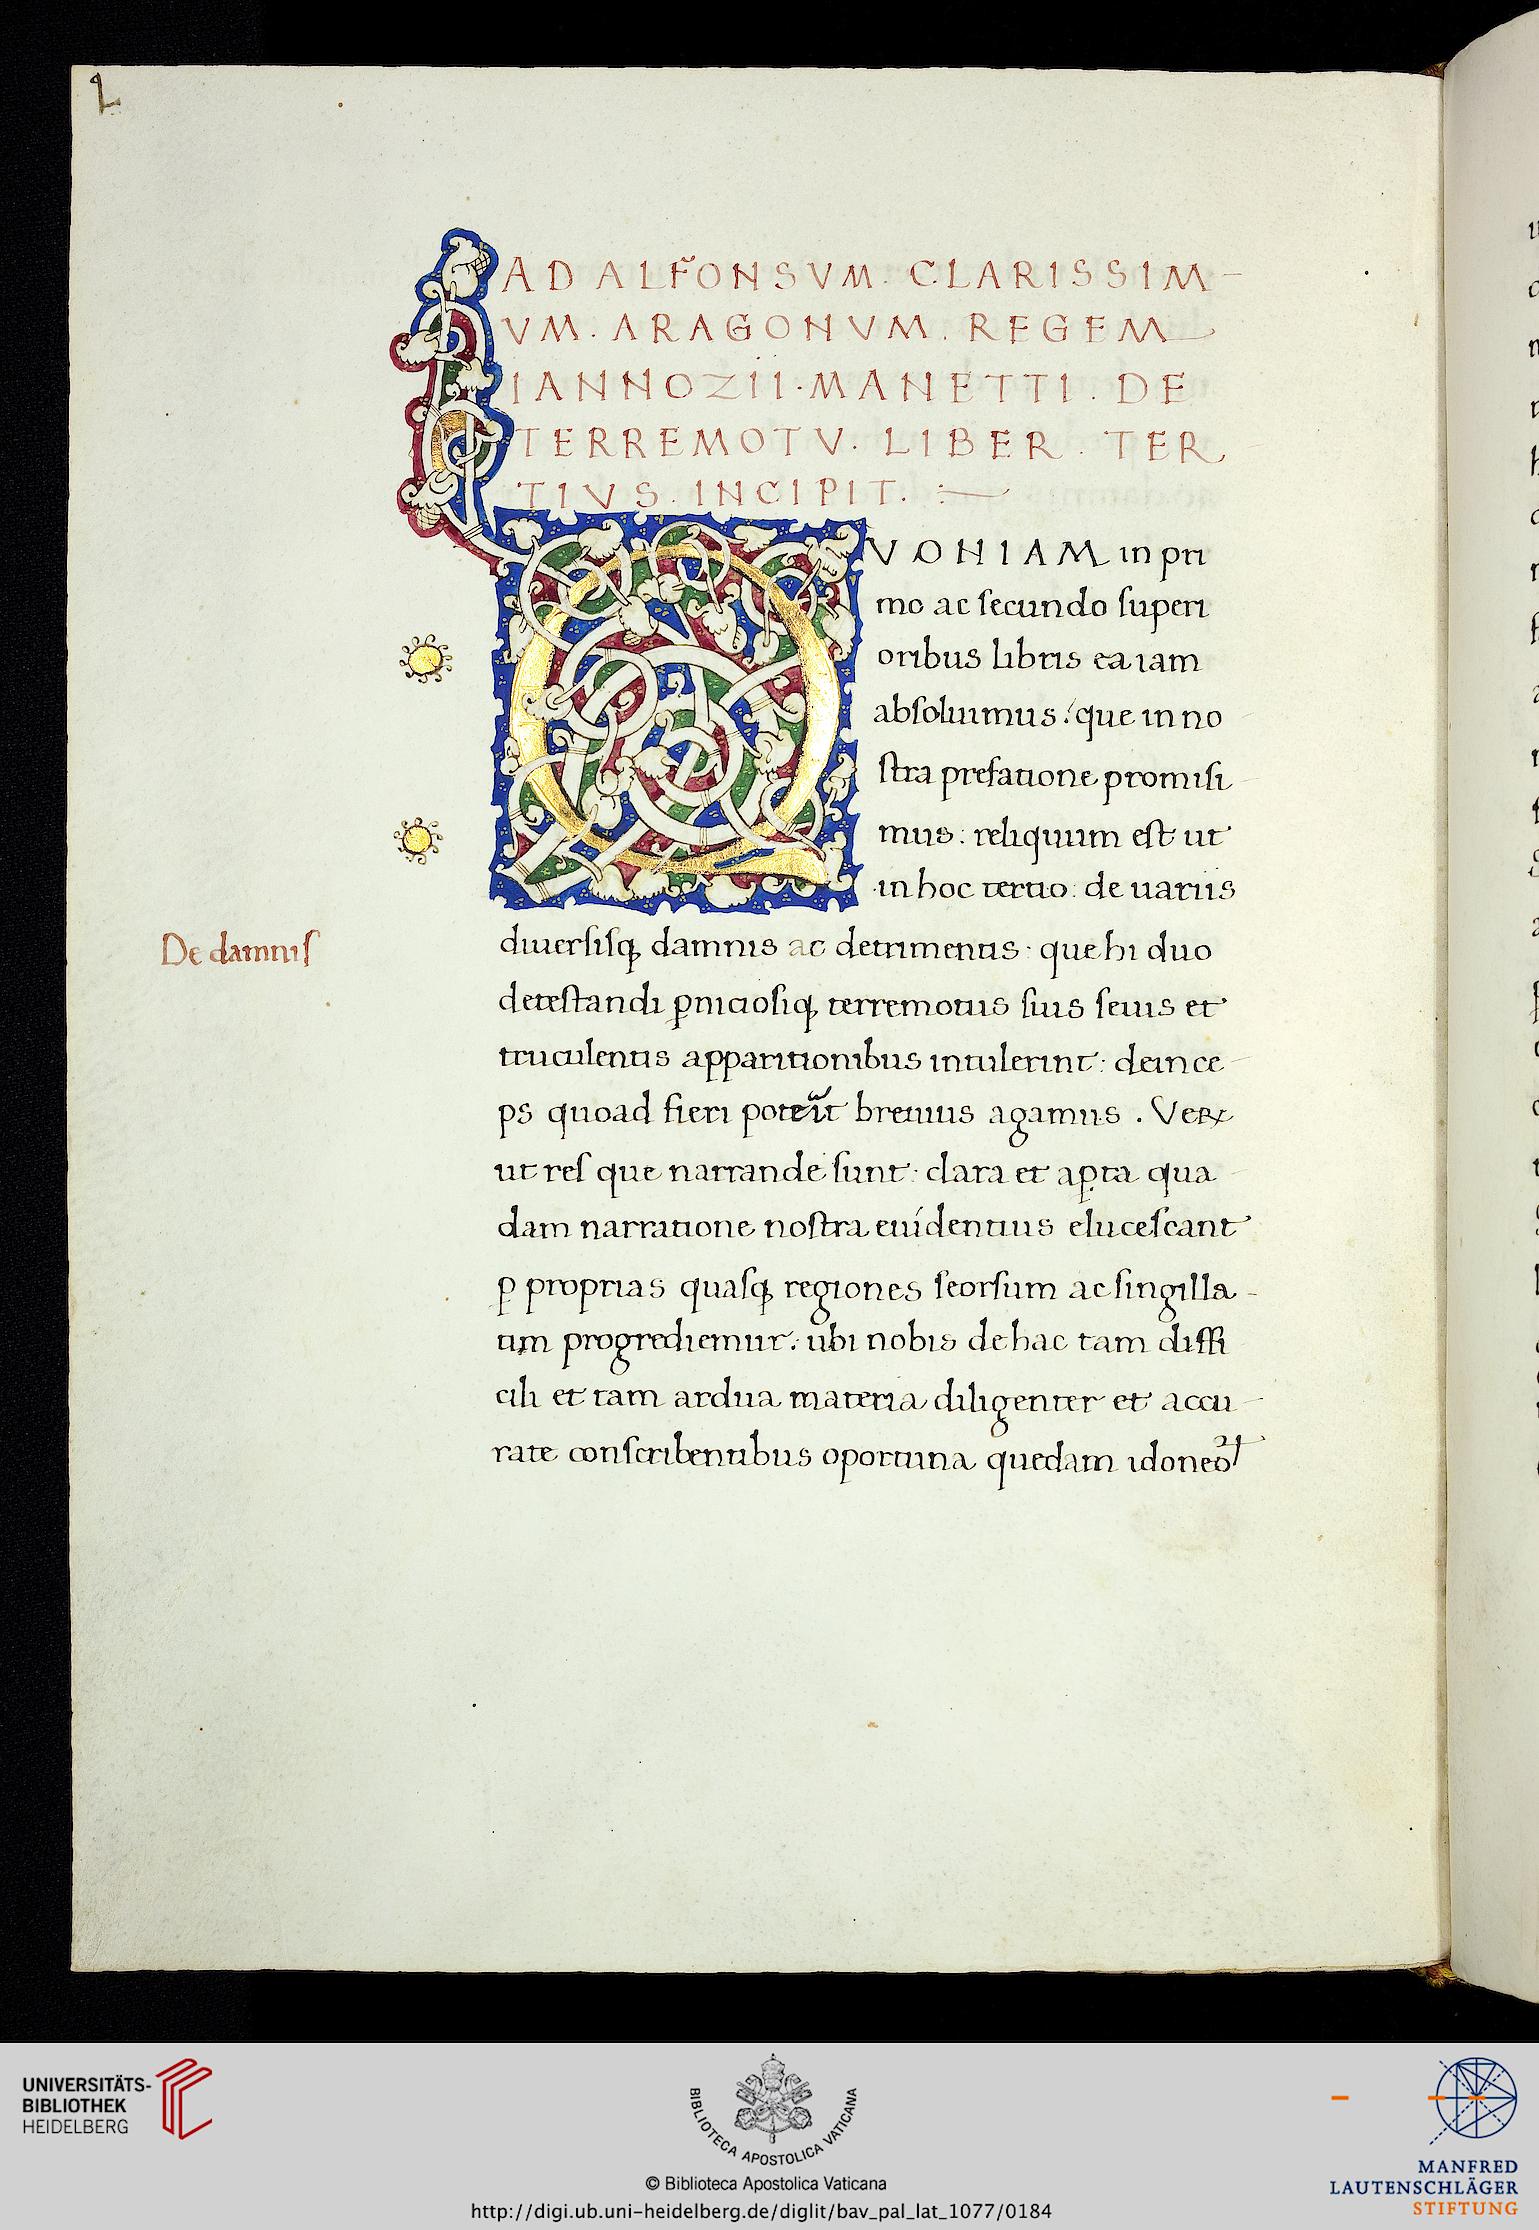 AD ALFONSVM. CLARISSIM-
VM. ARAGONVM. REGEM
IANNOZII. MANETTI. DE
TERREMOTV. LIBER. TER
TIVS. INCIPIT.
QVONIAM in pri
mo ac ſecundo ſuperi
oribus libris ea iam
abſoluimus: que in no
ſtra prefatione promiſi
mus: reliquum eſt ut
in hoc tertio: de uariis
De damniſ
diuerſiſqꝫ damnis ac detrimentis: que hi duo
deteſtandi ꝑnicioſiqꝫ terremotus ſuis ſeuis et
truculentis apparitionibus intulerint: deince
ps quoad fieri poteũt breuius agamus. Veꝝ
ut reſ que narrande ſunt: clara et aꝑta qua
dam narratione noſtra euidentius eluceſcant
ꝑ proprias quaſqꝫ regiones ſeorſum ac ſingilla-
tim progrediemur: ubi nobis de hac tam diffi
cili et tam ardua materia diligenter et accu-
rate conſcribentibus oportuna quedam idoneoꝝ
UNIVERSITÄTS-
BIBLIOTHEK
HEIDELBERG
BIBLIOTECA APOSTOLICA VATICANA
© Biblioteca Apostolica Vaticana
http://digi.ub.uni-heidelberg.de/diglit/bav_pal_lat_1077/0184
MANFRED
LAUTENSCHLÄGER
STIFTUNG